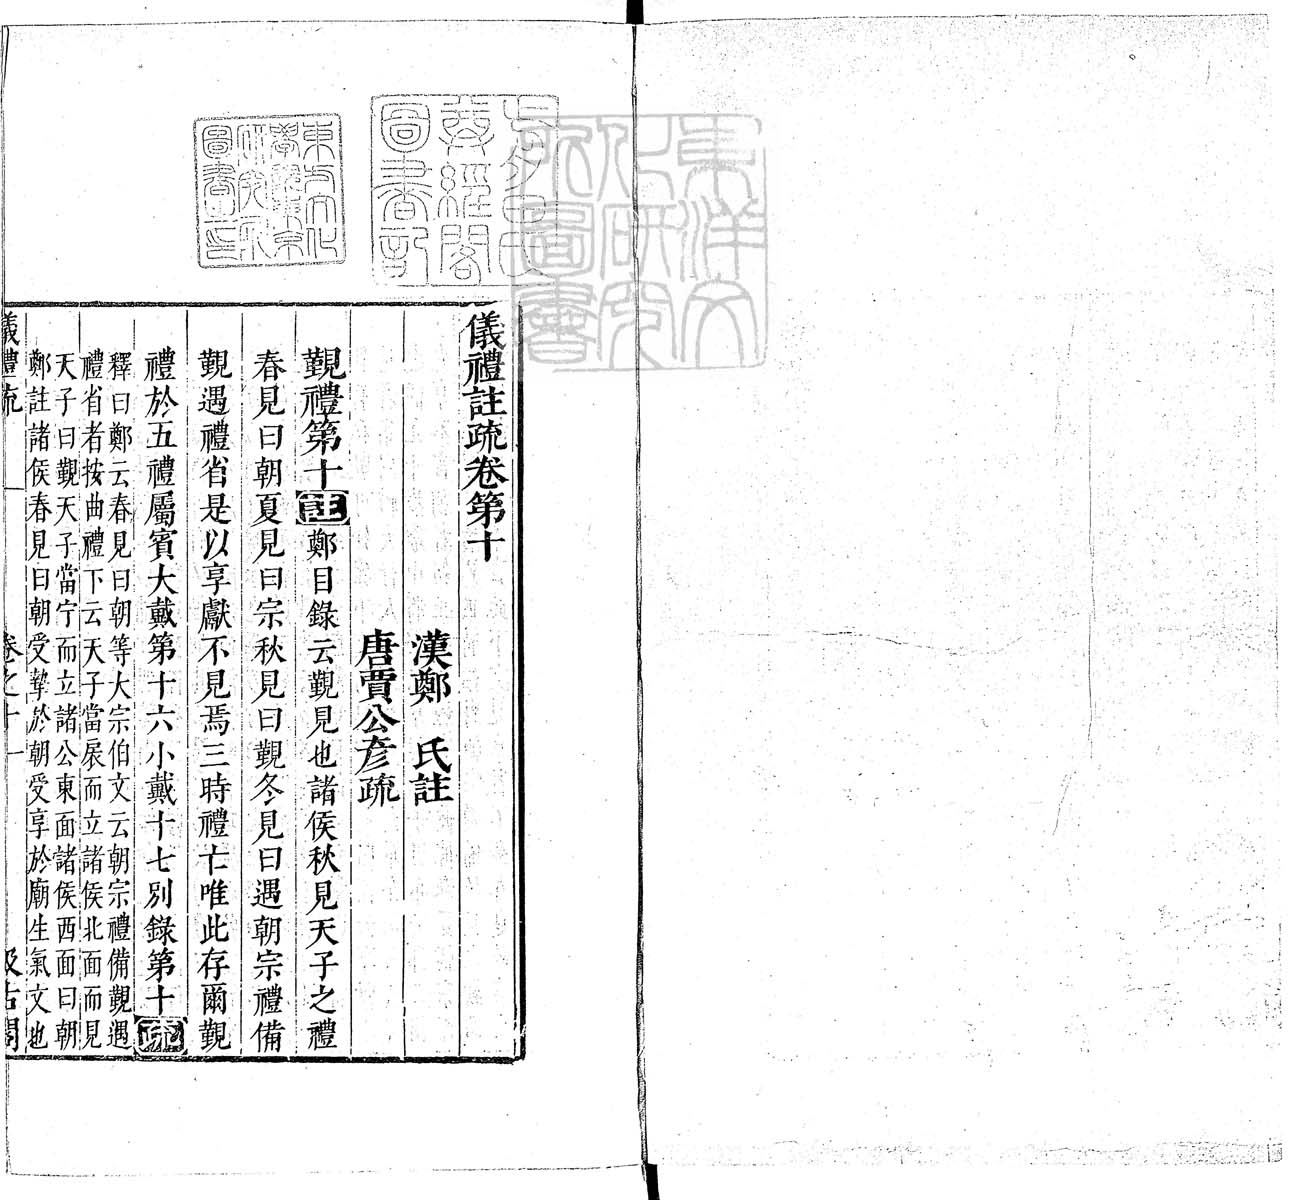 儀禮註疏卷第十
漢鄭　氏註
唐賈公彥疏
覲禮第十註鄭目錄云覲見也諸侯秋見天子之禮
春見曰朝夏見曰宗秋見曰覲冬見曰遇朝宗禮備
覲遇禮省是以享獻不見焉三時禮亡唯此存爾覲
禮於五禮屬賓大戴第十六小戴十七別錄第十疏
釋曰鄭云春見曰朝等大宗伯文云朝宗禮備覲遇
禮省者按曲禮下云天子當扆而立諸侯北面而見
天子曰覲天子當宁而立諸公東面諸侯西面曰朝
鄭註諸侯春見曰朝受摯於朝受享於廟生氣文也
儀禮疏　卷之十　一　汲古閣
東方文化學院東京研究所圖書之印
尊經閣
圖書記
東洋文
化研究
所圖書